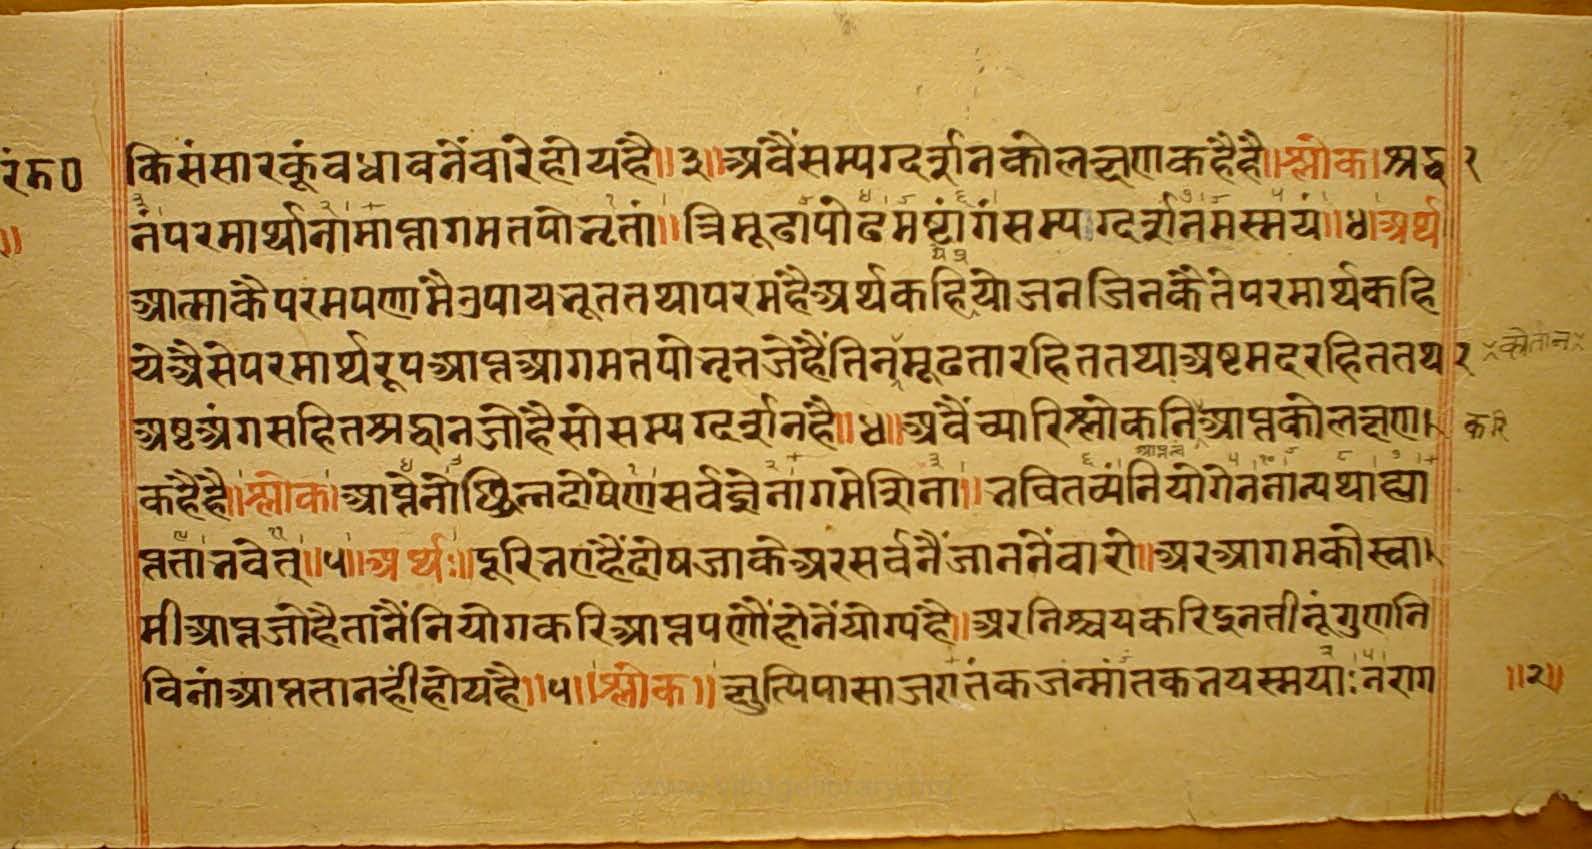 रंक०
किसंसारकूंवधावनेंवारेहोयहै॥३॥अवैंसम्यग्दर्शनकोलक्षणकहैहै॥श्लोक।श्रद्धा
नंपरमार्थानामाप्तागमतपोभृतां॥त्रिमूढापोढमष्टांगंसम्यग्दर्शनमस्मयं॥४।अर्थ
॥
आत्माकैपरमपणमैउपायभूततथापरमहैअर्थकहियेोजनजिनकैतेपरमार्थकहि
येअैसेपरमार्थरूपआप्तआगमतपोभृतजेहैंतिनमूढतारहिततथाअष्टमदरहिततथ
कोतान
अष्टअंगसहितश्रद्धानजोहैसोसम्यग्दर्शनहै॥४॥अवैंच्यारिश्लोकनिआप्तकोलक्षण।
करि
कहैहै॥श्लोक।आप्तेनोच्छिन्नदोषेणसर्वज्ञेनागमेशिना॥भवितव्यंनियोगेननान्यथाह्या
प्तताभवेत्॥५॥अर्थः॥दूरिभएहैंदोषजाकेअरसर्वनैंजाननेंवारो॥अरआगमकोस्वा।
मीआप्तजोहैतानैंनियोगकरिआप्तपणौंहोनेंयोग्यहै॥अरनिश्चयकरिइनतीनूंगुणनि
विनांआप्ततानहींहोयहै॥५॥श्लोक॥क्षुत्पिपासाजरातंकजन्मांतकभयस्मयाः।नराग
॥२॥